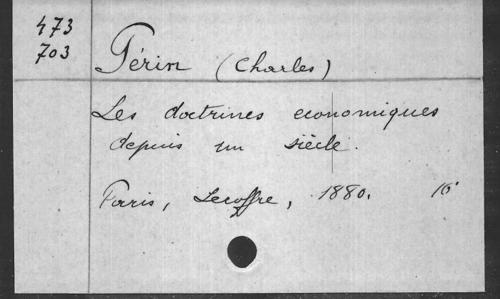 473
703
Périn (Charles)
Les doctrines economiques
depuis un siècle.
Paris, Lecoffre, 1880. 16°